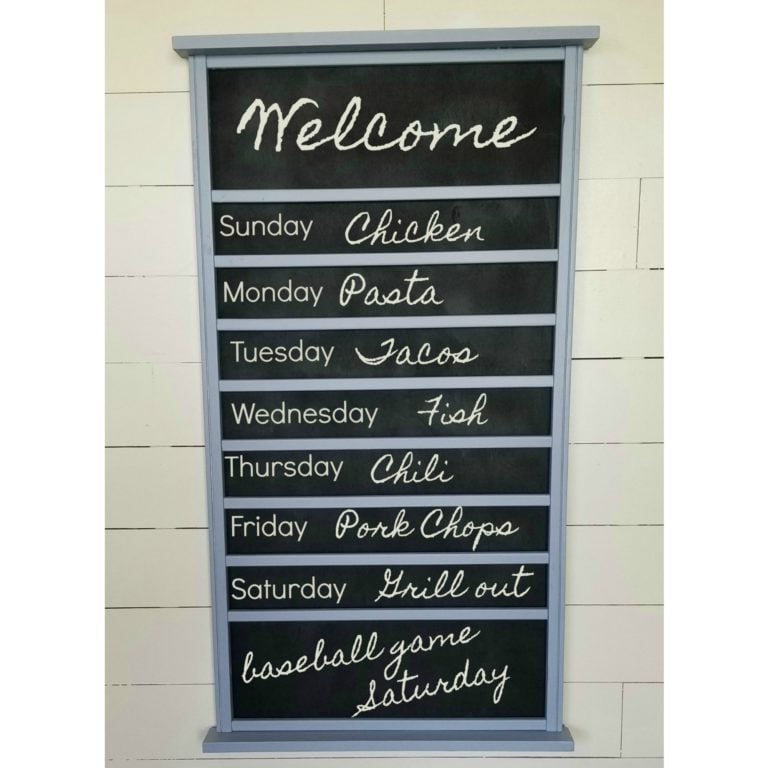 Welcome
Sunday Chicken
Monday Pasta
Tuesday Tacos
Wednesday Fish
Thursday Chili
Friday Pork Chops
Saturday Grill out
baseball game
Saturday